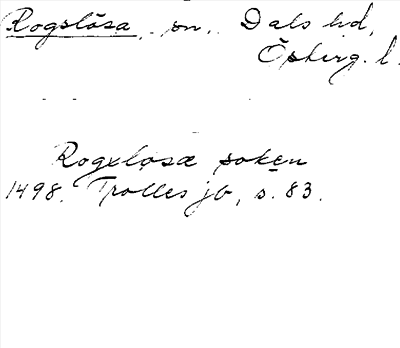 Rogslösa, sn, Dals hd,
Östergl.
Rogxløsæ soken
1498. Trolles jb, s. 83.